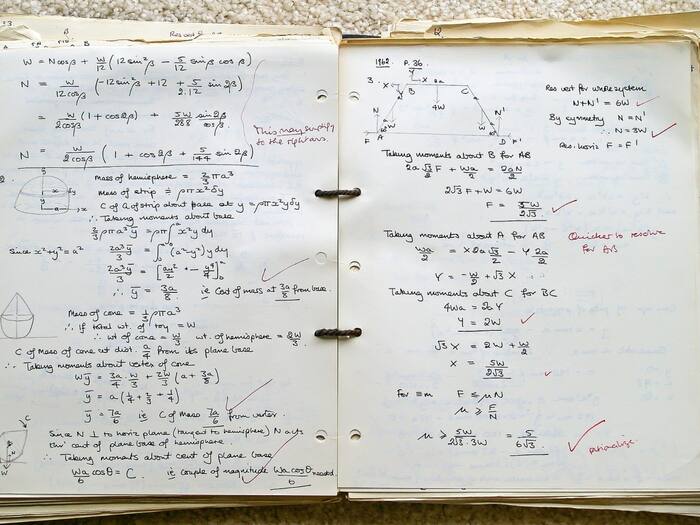 W = Ncosβ + W/12 (12 sin²β − 5/12 sinβ cosβ)
N = W/12cosβ (−12sin²β + 12 + 5/2.12 sin 2β)
= W/2cosβ (1 + cos2β) + 5W/288 sin2β/cosβ
This may simplify
to the right ans.
N = W/2cosβ (1 + cos2β + 5/144 sin2β)
Mass of hemisphere = 2/3 πa³
Mass of strip = ρπx²δy
C of G of strip about base at y = ρπx²yδy
∴ Taking moments about base
2/3 ρπa³ȳ = ρπ∫x²y dy
Since x²+y²=a² 2a³ȳ/3 = ∫(a²−y²)y dy
2a³ȳ/3 = [ay²/2 − y⁴/4]
∴ ȳ = 3a/8 ie C of mass at 3a/8 from base.
Mass of cone = 1/3 ρπa³
∴ If total wt. of toy = W
∴ wt of cone = W/3 wt. of hemisphere = 2W/3
C of Mass of cone wt dist. a/4 from its plane base
∴ Taking moments about vertex of cone
Wȳ = 3a/4 W/3 + 2W/3 (a + 3a/8)
ȳ = a(1/4 + 2/3 + 1/4)
ȳ = 7a/6 ie C of Mass 7a/6 from vertex.
Since N ⊥ to horiz plane (tangent to hemisphere) N acts
thro' cent of plane base of hemisphere.
∴ Taking moments about cent of plane base
Wa/6 cosθ = C ie couple of magnitude Wa cosθ/6 needed
1962. P.36
3.
Y
X
B
2a
C
4W
N
W
F
A
N'
W
D
F'
Res vert for whole system
N+N' = 6W
By symmetry N = N'
∴ N = 3W
Res. horiz F = F'
Taking moments about B for AB
2a√3/2 F + Wa/2 = 2aN/2
2√3 F + W = 6W
F = 5W/2√3
Taking moments about A for AB
Quicker to resolve
for AB
Wa/2 = X2a√3/2 − Y2a/2
Y = −W/2 + √3 X
Taking moments about C for BC
4Wa = 2aY
Y = 2W
√3 X = 2W + W/2
X = 5W/2√3
For ≡m F ≤ μN
μ ≥ F/N
μ ≥ 5W/2√3.3W = 5/6√3
rationalise